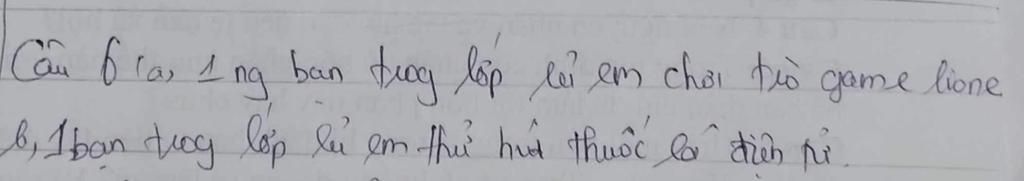 Câu 6 (a, 1 ng bạn trog lớp rủ em chơi trò game lione
b, 1 bạn trog lớp rủ em thử hút thuốc lá điện tử.